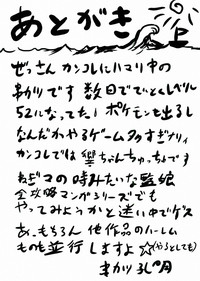 あとがき
ぜっさんカンコレにハマり中の
ありです 数日でていとくレベル
52になってた! ポケモンも出るし
なんだわやるゲーム多すぎナリィ
カンコレでは響ちゃんちゅっちょです
ねぎマの時みたいな艦娘
全攻略マンガシリーズでも
やってみようかと迷い中でゲス
あ、もちろん他作品のハーレム
ものも並行しますよ☆(やるとしても)